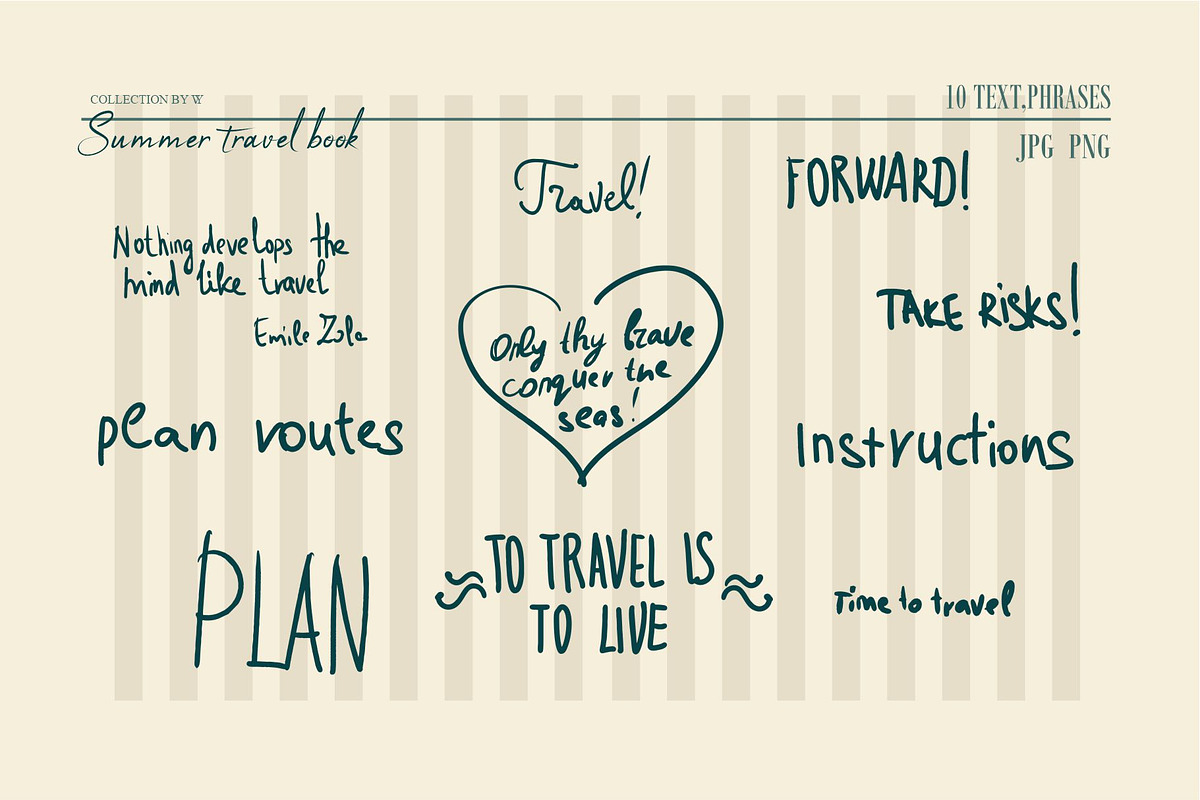 COLLECTION BY W
10 TEXT,PHRASES
Summer travel book
JPG PNG
Travel!
FORWARD!
Nothing develops the
mind like travel
Emile Zola
Only thy brave
conquer the
seas!
TAKE RISKS!
plan routes
Instructions
PLAN
TO TRAVEL IS
TO LIVE
Time to travel